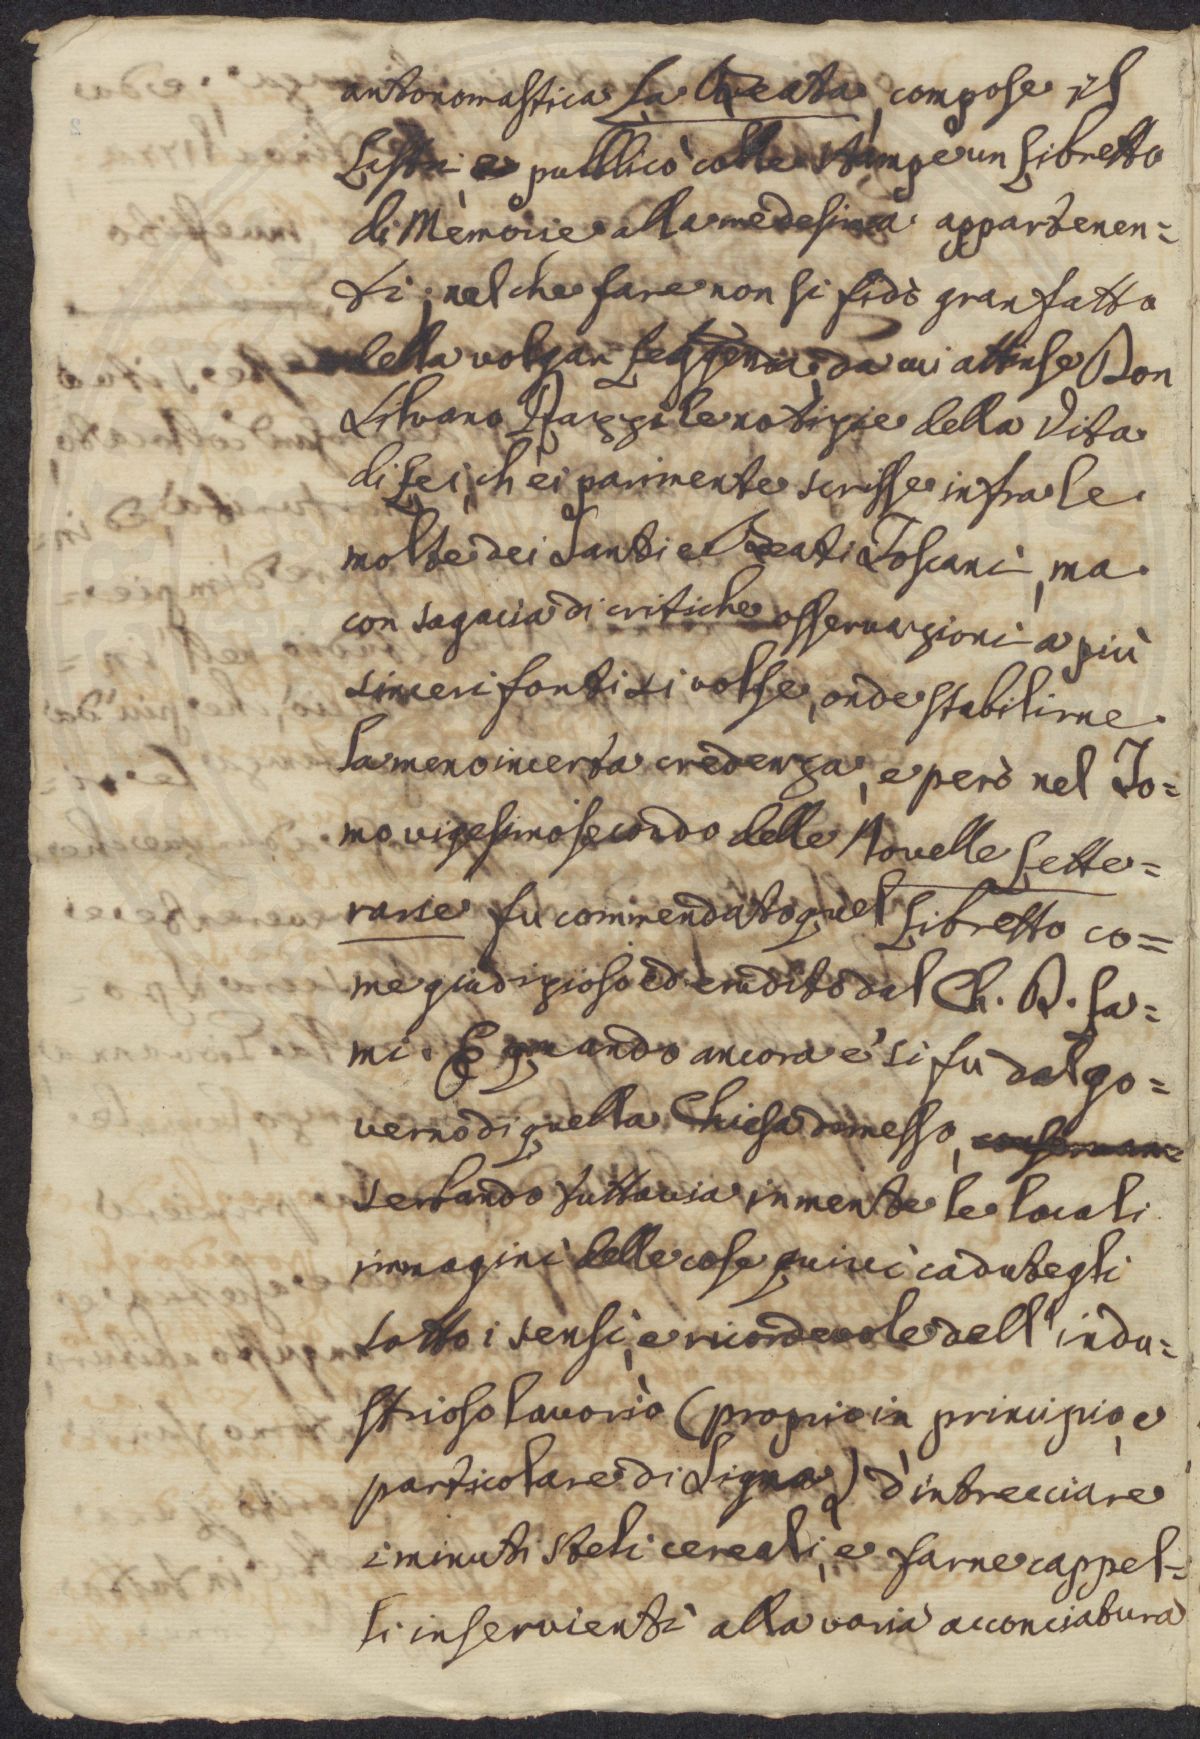 antonomastica La Beata, compose il
Lastri e pubblicò colle stampe un Libretto
di Memorie alla medesima appartenen=
ti; nel che fare non si fidò gran fatto
della volgar Leggenda, da cui attinse Don
Silvano Razzi le notizie della Vita
di Lei, ch'ei parimente scrisse infra le
molte dei Santi e Beati Toscani, ma
con sagacia di critiche osservazioni a più
sinceri fonti si volse, onde stabilirne
la meno incerta credenza, e però nel To=
mo vigesimosecondo delle Novelle Lette=
rarie fu commendato quel Libretto co=
me giudizioso ed erudito dal Ch. D. La=
mi. E quando ancora e' si fu dal go=
verno di quella Chiesa dimesso,
serbando tuttavia in mente le locali
immagini delle cose quivi cadutegli
sotto i sensi, e ricordevole dell'indu=
strioso lavorìo (proprio in principio, e
particolare di Signa) d'intrecciare
i minuti steli cereali, e farne cappel=
li inservienti alla varia acconciatura